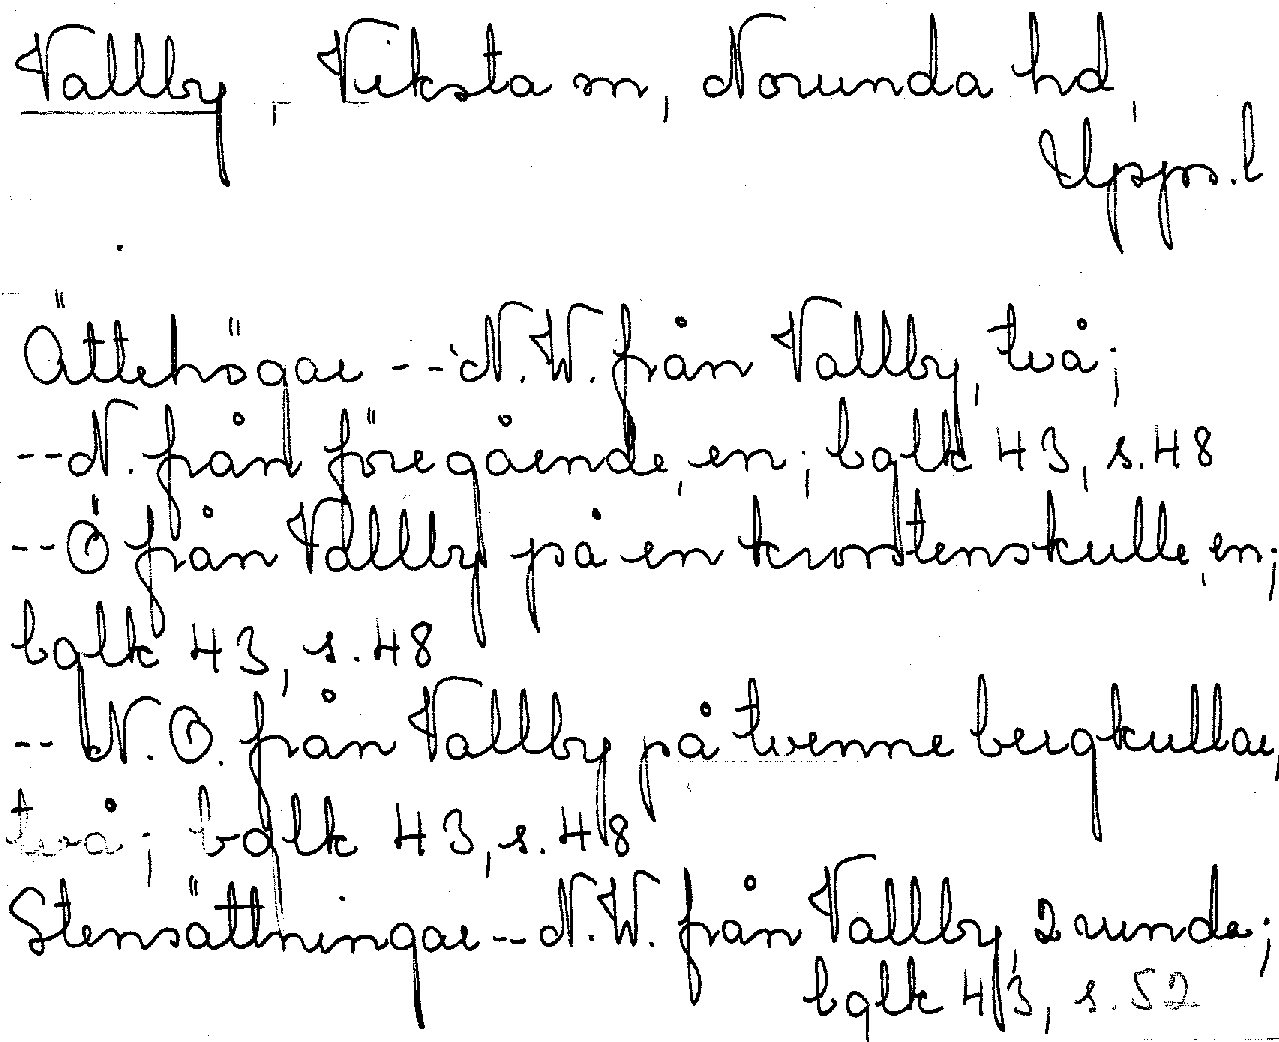 Vallby, Viksta sn, Norunda hd,
Upps. l
Ättehögar -- N.W. från Vallby, två;
-- N. från föregående, en; bglk 43, s. 48
-- Ö från Vallby på en krosstenskulle, en;
bglk 43, s. 48
-- N.O. från Vallby på tvenne bergkullar,
två; bglk 43, s. 48
Stensättningar -- N.W. från Vallby, 2 runda;
bglk 43, s. 52